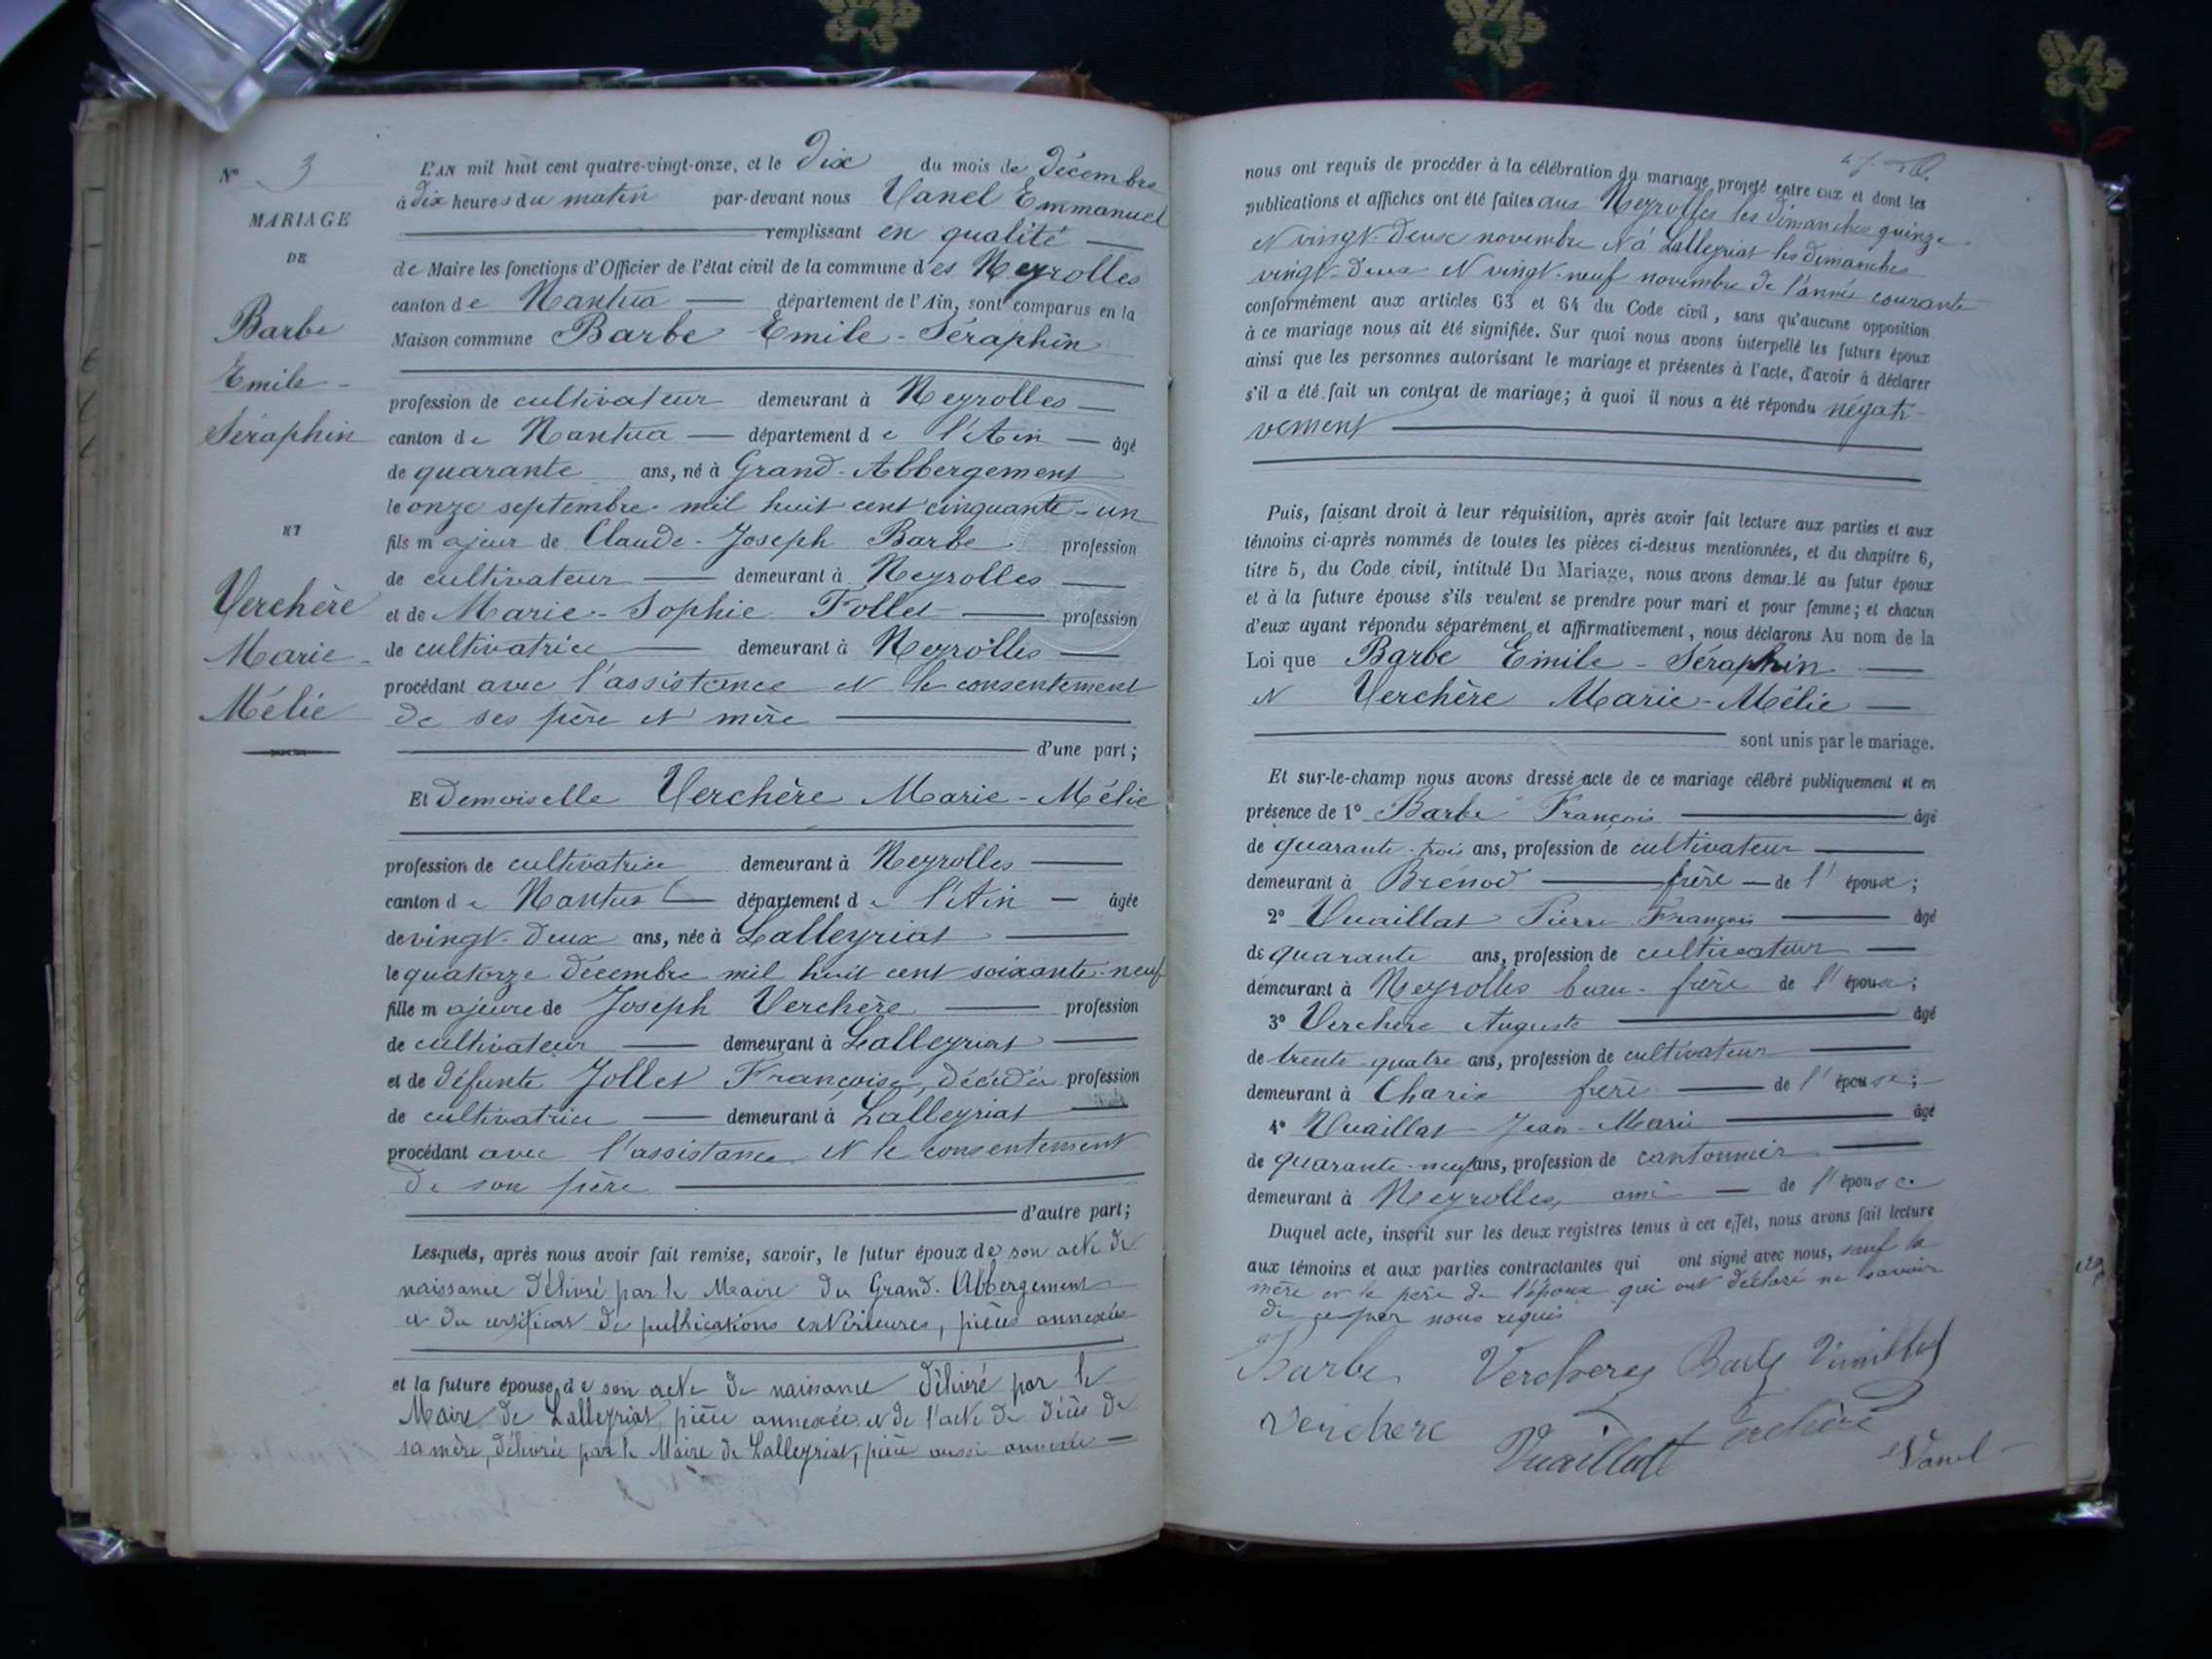 N° 3
MARIAGE
DE
Barbe
Emile
Séraphin
ET
Verchère
Marie
Mélie
L'AN mil huit cent quatre-vingt-onze, et le Dix du mois de Décembre
à Dix heures du matin par-devant nous Vanel Emmanuel
remplissant en qualité
de Maire les fonctions d'Officier de l'état civil de la commune des Neyrolles
canton de Nantua département de l'Ain, sont comparus en la
Maison commune Barbe Emile-Séraphin
profession de cultivateur demeurant à Neyrolles
canton de Nantua département de l'Ain âgé
de quarante ans, né à Grand-Abbergement
le onze septembre mil huit cent cinquante-un
fils majeur de Claude-Joseph Barbe profession
de cultivateur demeurant à Neyrolles
et de Marie-Sophie Follet profession
de cultivatrice demeurant à Neyrolles
procédant avec l'assistance et le consentement
de ses père et mère
d'une part;
Et Demoiselle Verchère Marie-Mélie
profession de cultivatrice demeurant à Neyrolles
canton de Nantua département de l'Ain âgée
de vingt-deux ans, née à Lalleyriat
le quatorze décembre mil huit cent soixante-neuf
fille majeure de Joseph Verchère profession
de cultivateur demeurant à Lalleyriat
et de défunte Jollet Françoise, décédée profession
de cultivatrice demeurant à Lalleyriat
procédant avec l'assistance et le consentement
de son père
d'autre part;
Lesquels, après nous avoir fait remise, savoir, le futur époux de son acte de
naissance délivré par le Maire du Grand-Abbergement
et du certificat de publications extérieures, pièces annexées
et la future épouse, de son acte de naissance délivré par le
Maire de Lalleyriat, pièce annexée et de l'acte de décès de
sa mère, délivrée par le Maire de Lalleyriat, pièce aussi annexée
nous ont requis de procéder à la célébration du mariage projeté entre eux et dont les
publications et affiches ont été faites aux Neyrolles les Dimanches quinze
et vingt-deux novembre et à Lalleyriat les dimanches
vingt-deux et vingt-neuf novembre de l'année courante
conformément aux articles 63 et 64 du Code civil, sans qu'aucune opposition
à ce mariage nous ait été signifiée. Sur quoi nous avons interpellé les futurs époux
ainsi que les personnes autorisant le mariage et présentes à l'acte, d'avoir à déclarer
s'il a été fait un contrat de mariage; à quoi il nous a été répondu négati-
vement
Puis, faisant droit à leur réquisition, après avoir fait lecture aux parties et aux
témoins ci-après nommés de toutes les pièces ci-dessus mentionnées, et du chapitre 6,
titre 5, du Code civil, intitulé Du Mariage, nous avons demandé au futur époux
et à la future épouse s'ils veulent se prendre pour mari et pour femme; et chacun
d'eux ayant répondu séparément et affirmativement, nous déclarons Au nom de la
Loi que Barbe Emile-Séraphin
et Verchère Marie-Mélie
sont unis par le mariage.
Et sur-le-champ nous avons dressé acte de ce mariage célébré publiquement et en
présence de 1° Barbe François âgé
de quarante-trois ans, profession de cultivateur
demeurant à Brénod frère de l'époux;
2° Vuaillat Pierre François âgé
de quarante ans, profession de cultivateur
demeurant à Neyrolles beau-frère de l'époux;
3° Verchère Auguste âgé
de trente-quatre ans, profession de cultivateur
demeurant à Charix frère de l'épouse;
4° Vuaillat Jean-Marie âgé
de quarante-neuf ans, profession de cantonnier
demeurant à Neyrolles, ami de l'épouse
Duquel acte, inscrit sur les deux registres tenus à cet effet, nous avons fait lecture
aux témoins et aux parties contractantes qui ont signé avec nous, sauf la
mère et le père de l'époux qui ont déclaré ne savoir
de ce par nous requis
Barbe Verchere Barbe Vuaillat
Verchere Vuaillat Verchère Vanel